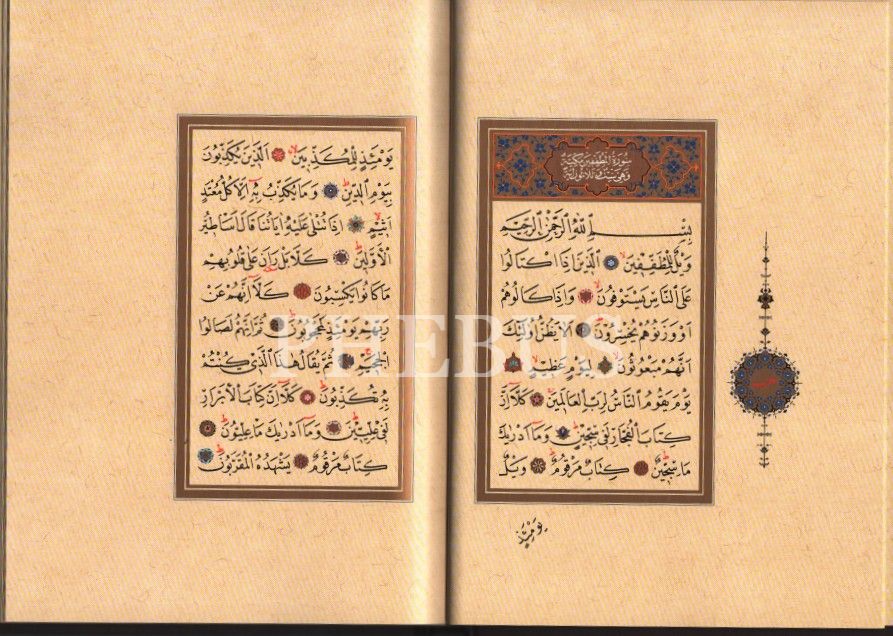 سورة المطففين مكية
وهى ست وثلاثون اية
بِسْمِ اللّٰهِ الرَّحْمٰنِ الرَّحِيمِ
وَيْلٌ لِلْمُطَفِّفِينَ اَلَّذِينَ اِذَا اكْتَالُوا
عَلَى النَّاسِ يَسْتَوْفُونَ وَاِذَا كَالُوهُمْ
اَوْ وَزَنُوهُمْ يُخْسِرُونَ اَلَا يَظُنُّ اُولٰئِكَ
اَنَّهُمْ مَبْعُوثُونَ لِيَوْمٍ عَظِيمٍ
يَوْمَ يَقُومُ النَّاسُ لِرَبِّ الْعَالَمِينَ كَلَّا اِنَّ
كِتَابَ الْفُجَّارِ لَفِى سِجِّينٍ وَمَا اَدْرٰيكَ
مَا سِجِّينٌ كِتَابٌ مَرْقُومٌ وَيْلٌ
يَوْمَئِذٍ
حزب
يَوْمَئِذٍ لِلْمُكَذِّبِينَ اَلَّذِينَ يُكَذِّبُونَ
بِيَوْمِ الدِّينِ وَمَا يُكَذِّبُ بِهِ اِلَّا كُلُّ مُعْتَدٍ
اَثِيمٍ اِذَا تُتْلٰى عَلَيْهِ اٰيَاتُنَا قَالَ اَسَاطِيرُ
الْاَوَّلِينَ كَلَّا بَلْ رَانَ عَلٰى قُلُوبِهِمْ
مَا كَانُوا يَكْسِبُونَ كَلَّا اِنَّهُمْ عَنْ
رَبِّهِمْ يَوْمَئِذٍ لَمَحْجُوبُونَ ثُمَّ اِنَّهُمْ لَصَالُوا
الْجَحِيمِ ثُمَّ يُقَالُ هٰذَا الَّذِى كُنْتُمْ
بِهِ تُكَذِّبُونَ كَلَّا اِنَّ كِتَابَ الْاَبْرَارِ
لَفِى عِلِّيِّينَ وَمَا اَدْرٰيكَ مَا عِلِّيُّونَ
كِتَابٌ مَرْقُومٌ يَشْهَدُهُ الْمُقَرَّبُونَ
PHEBUS